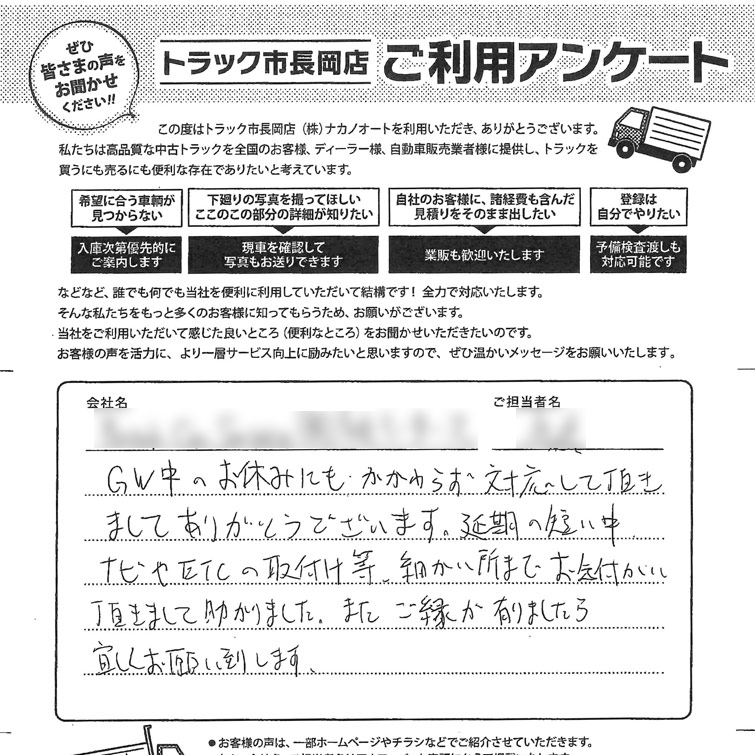 ぜひ
皆さまの声を
お聞かせ
ください!!
トラック市長岡店 ご利用アンケート
この度はトラック市長岡店（株）ナカノオートを利用いただき、ありがとうございます。
私たちは高品質な中古トラックを全国のお客様、ディーラー様、自動車販売業者様に提供し、トラックを
買うにも売るにも便利な存在でありたいと考えています。
希望に合う車輌が
見つからない
入庫次第優先的に
ご案内します
下廻りの写真を撮ってほしい
ここのこの部分の詳細が知りたい
現車を確認して
写真もお送りできます
自社のお客様に、諸経費も含んだ
見積りをそのまま出したい
業販も歓迎いたします
登録は
自分でやりたい
予備検査渡しも
対応可能です
などなど、誰でも何でも当社を便利に利用していただいて結構です！全力で対応いたします。
そんな私たちをもっと多くのお客様に知ってもらうため、お願いがございます。
当社をご利用いただいて感じた良いところ（便利なところ）をお聞かせいただきたいのです。
お客様の声を活力に、より一層サービス向上に励みたいと思いますので、ぜひ温かいメッセージをお願いいたします。
会社名 ご担当者名
GW中のお休みにもかかわらず対応して頂き
ましてありがとうございます。延期の短い中
ナビやETCの取付け等、細かい所までお気付かい
頂きまして助かりました。またご縁が有りましたら
宜しくお願い到します、
●お客様の声は、一部ホームページやチラシなどでご紹介させていただきます。